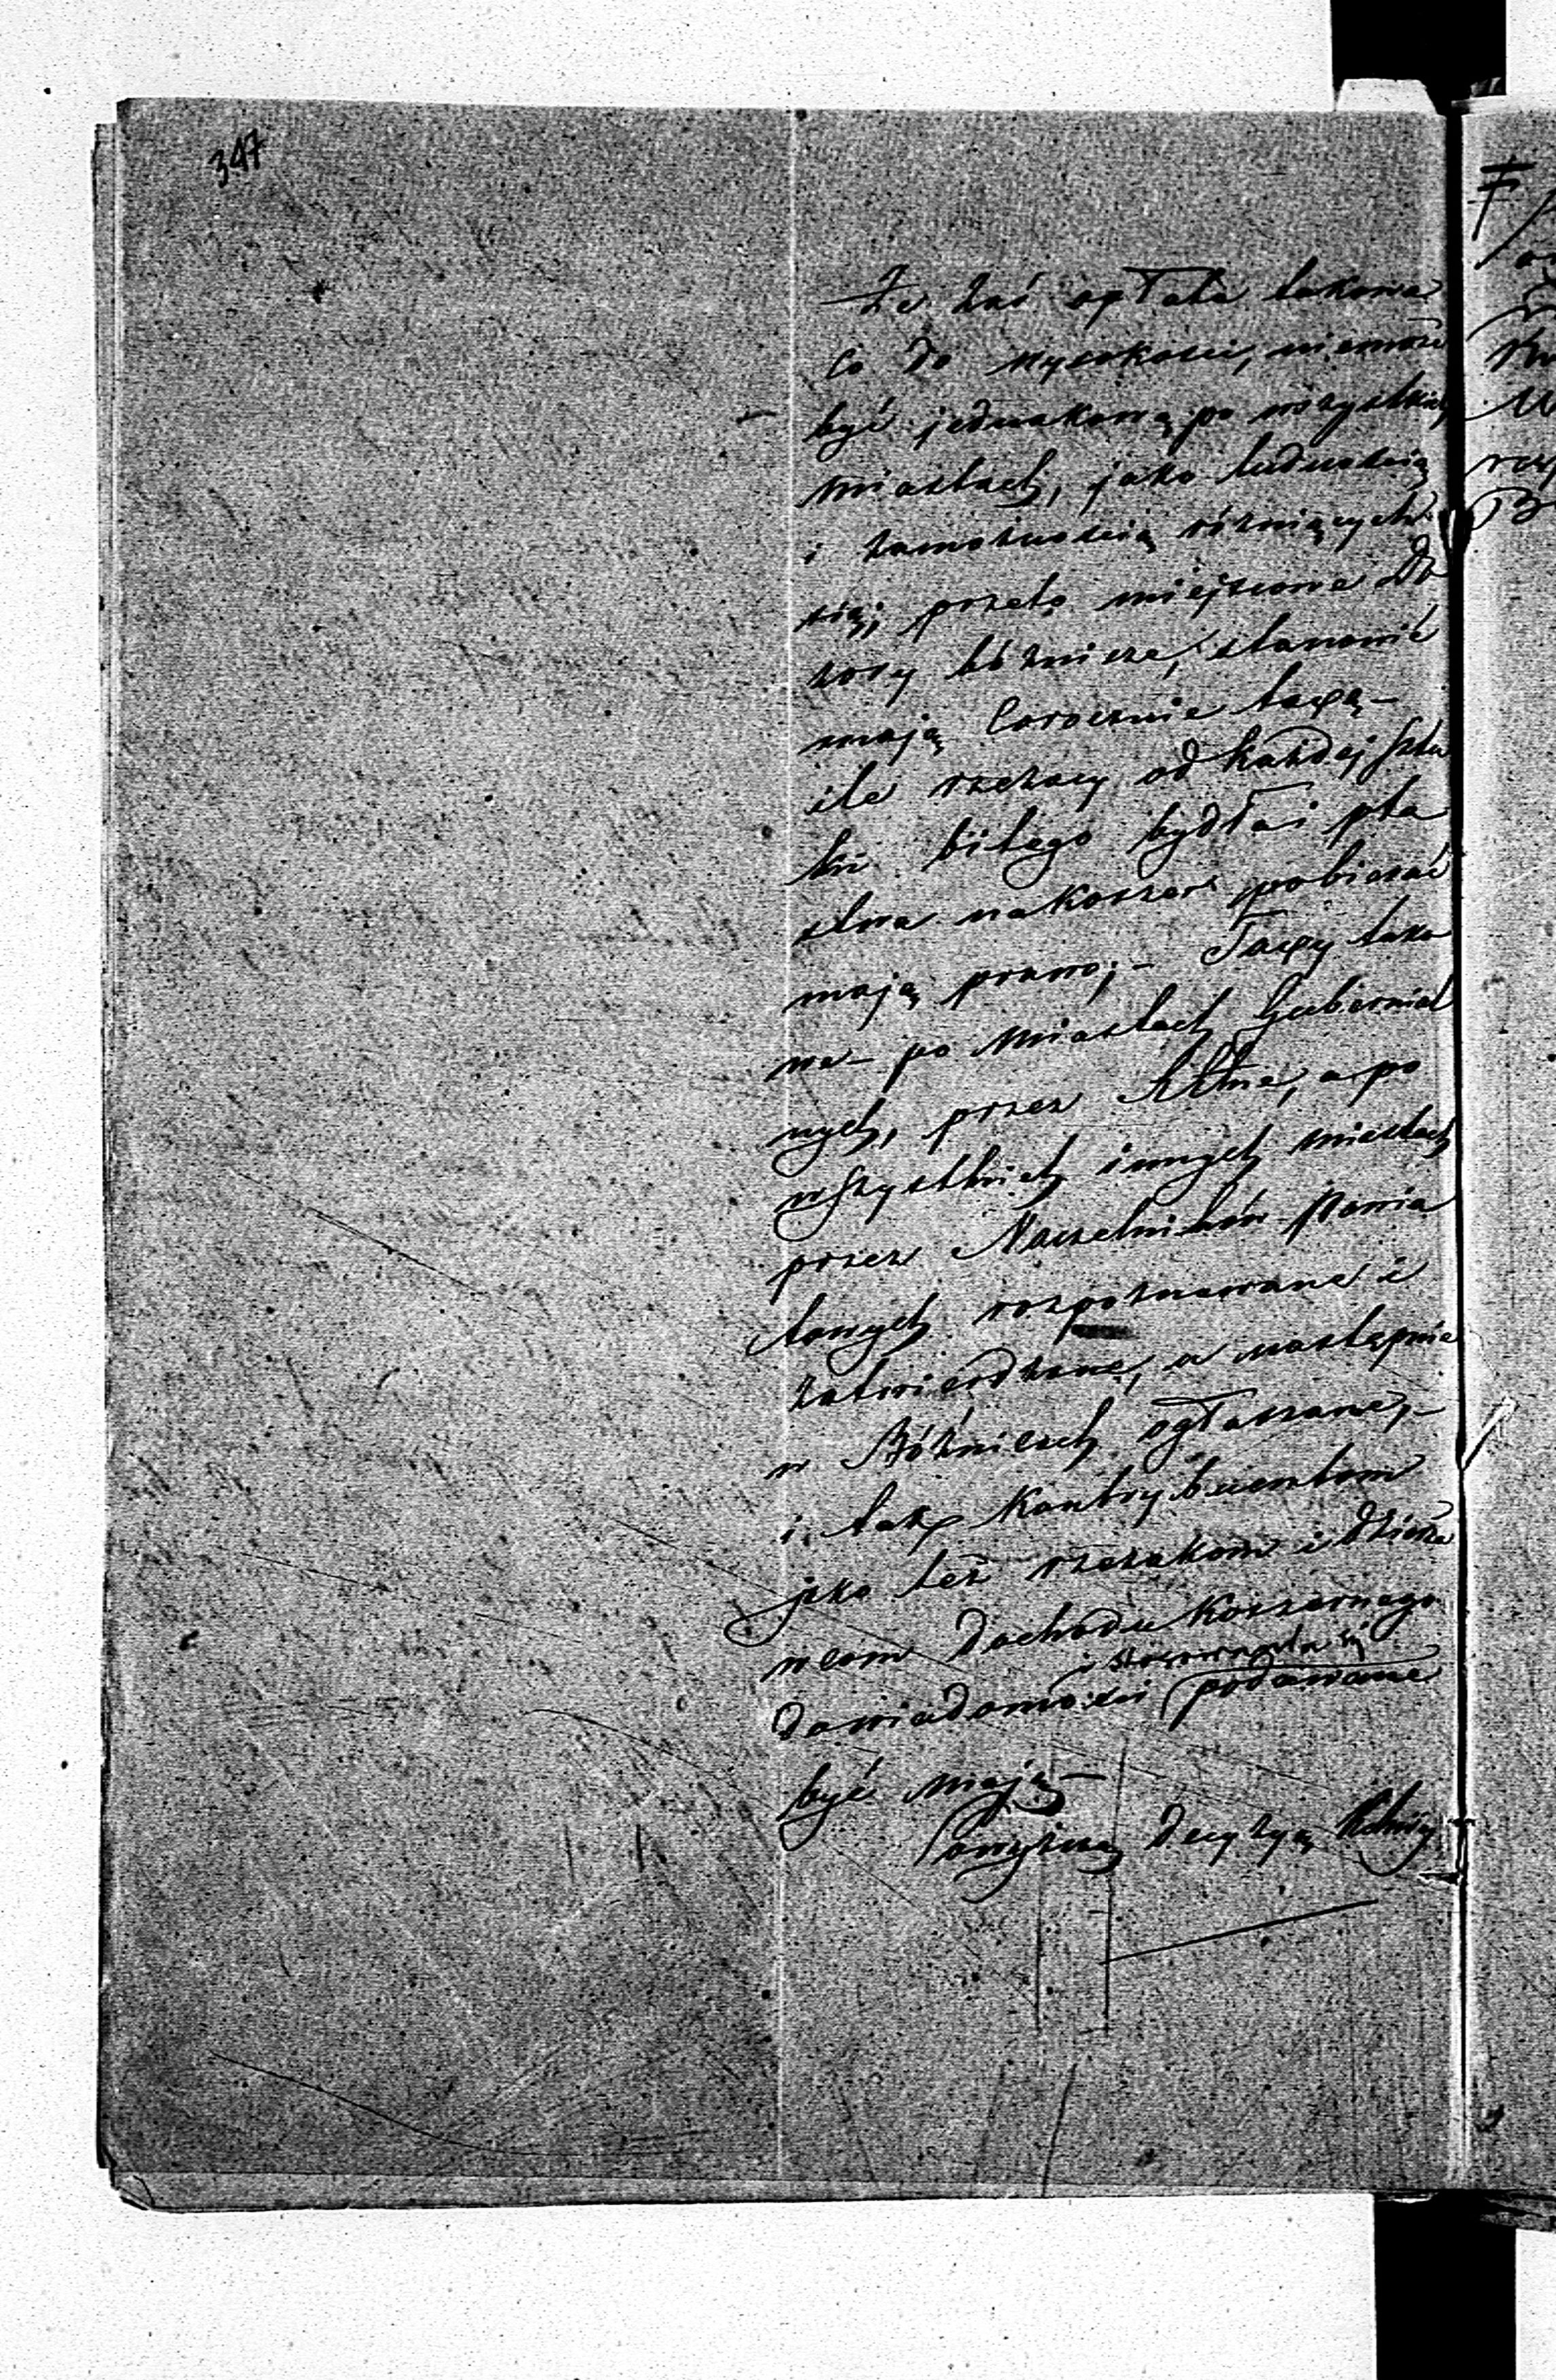 347
Że zaś opłata takowa
co do wysokości, niemoże
być jednakową po wszystkich
miastach, jako ludnością
i zamożnością różniących
się; przeto miejscowe Do
zory bóżnicze, stanowić
mają corocznie taxę –
ile rzezacy od każdej sztu
ki bitego bydła i pta
stwa na koszer pobierać
mają prawo; – Taxy tako
we – po miastach Gubernial
nych, przez , a po
wszystkich innych miastach
przez Naczelników Powia
towych rozpoznawane i
zatwierdzane, a następnie
w Bóżnicach ogłaszane, –
i tak Kontrybuentom
jako też rzezakom i dzierża
wcom dochodu Koszernego
i stosowania się
do wiadomości podawane
być mają –
Powyższą decyzyą